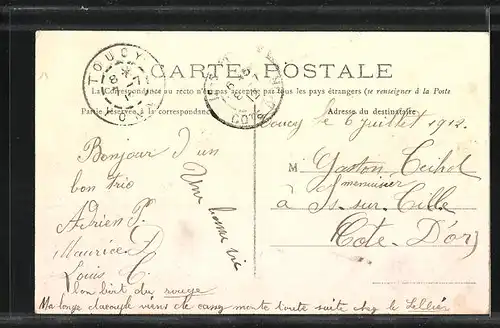 CARTE POSTALE
La Correspondance au recto n'est pas acceptée par tous les pays étrangers (se renseigner à la Poste
Partie réservée à la correspondance
Adresse du destinataire
TOUCY
Toucy le 6 juillet 1912.
Bonjour d'un
bon trio
Adrien P.
Maurice D
Louis C
bon biit du rouge
Une bonne vie
M Gaston
menuisier
à Is-sur-Tille
Côte-D'or
Ma longe viens de casser monte toute suite chez le Sellier